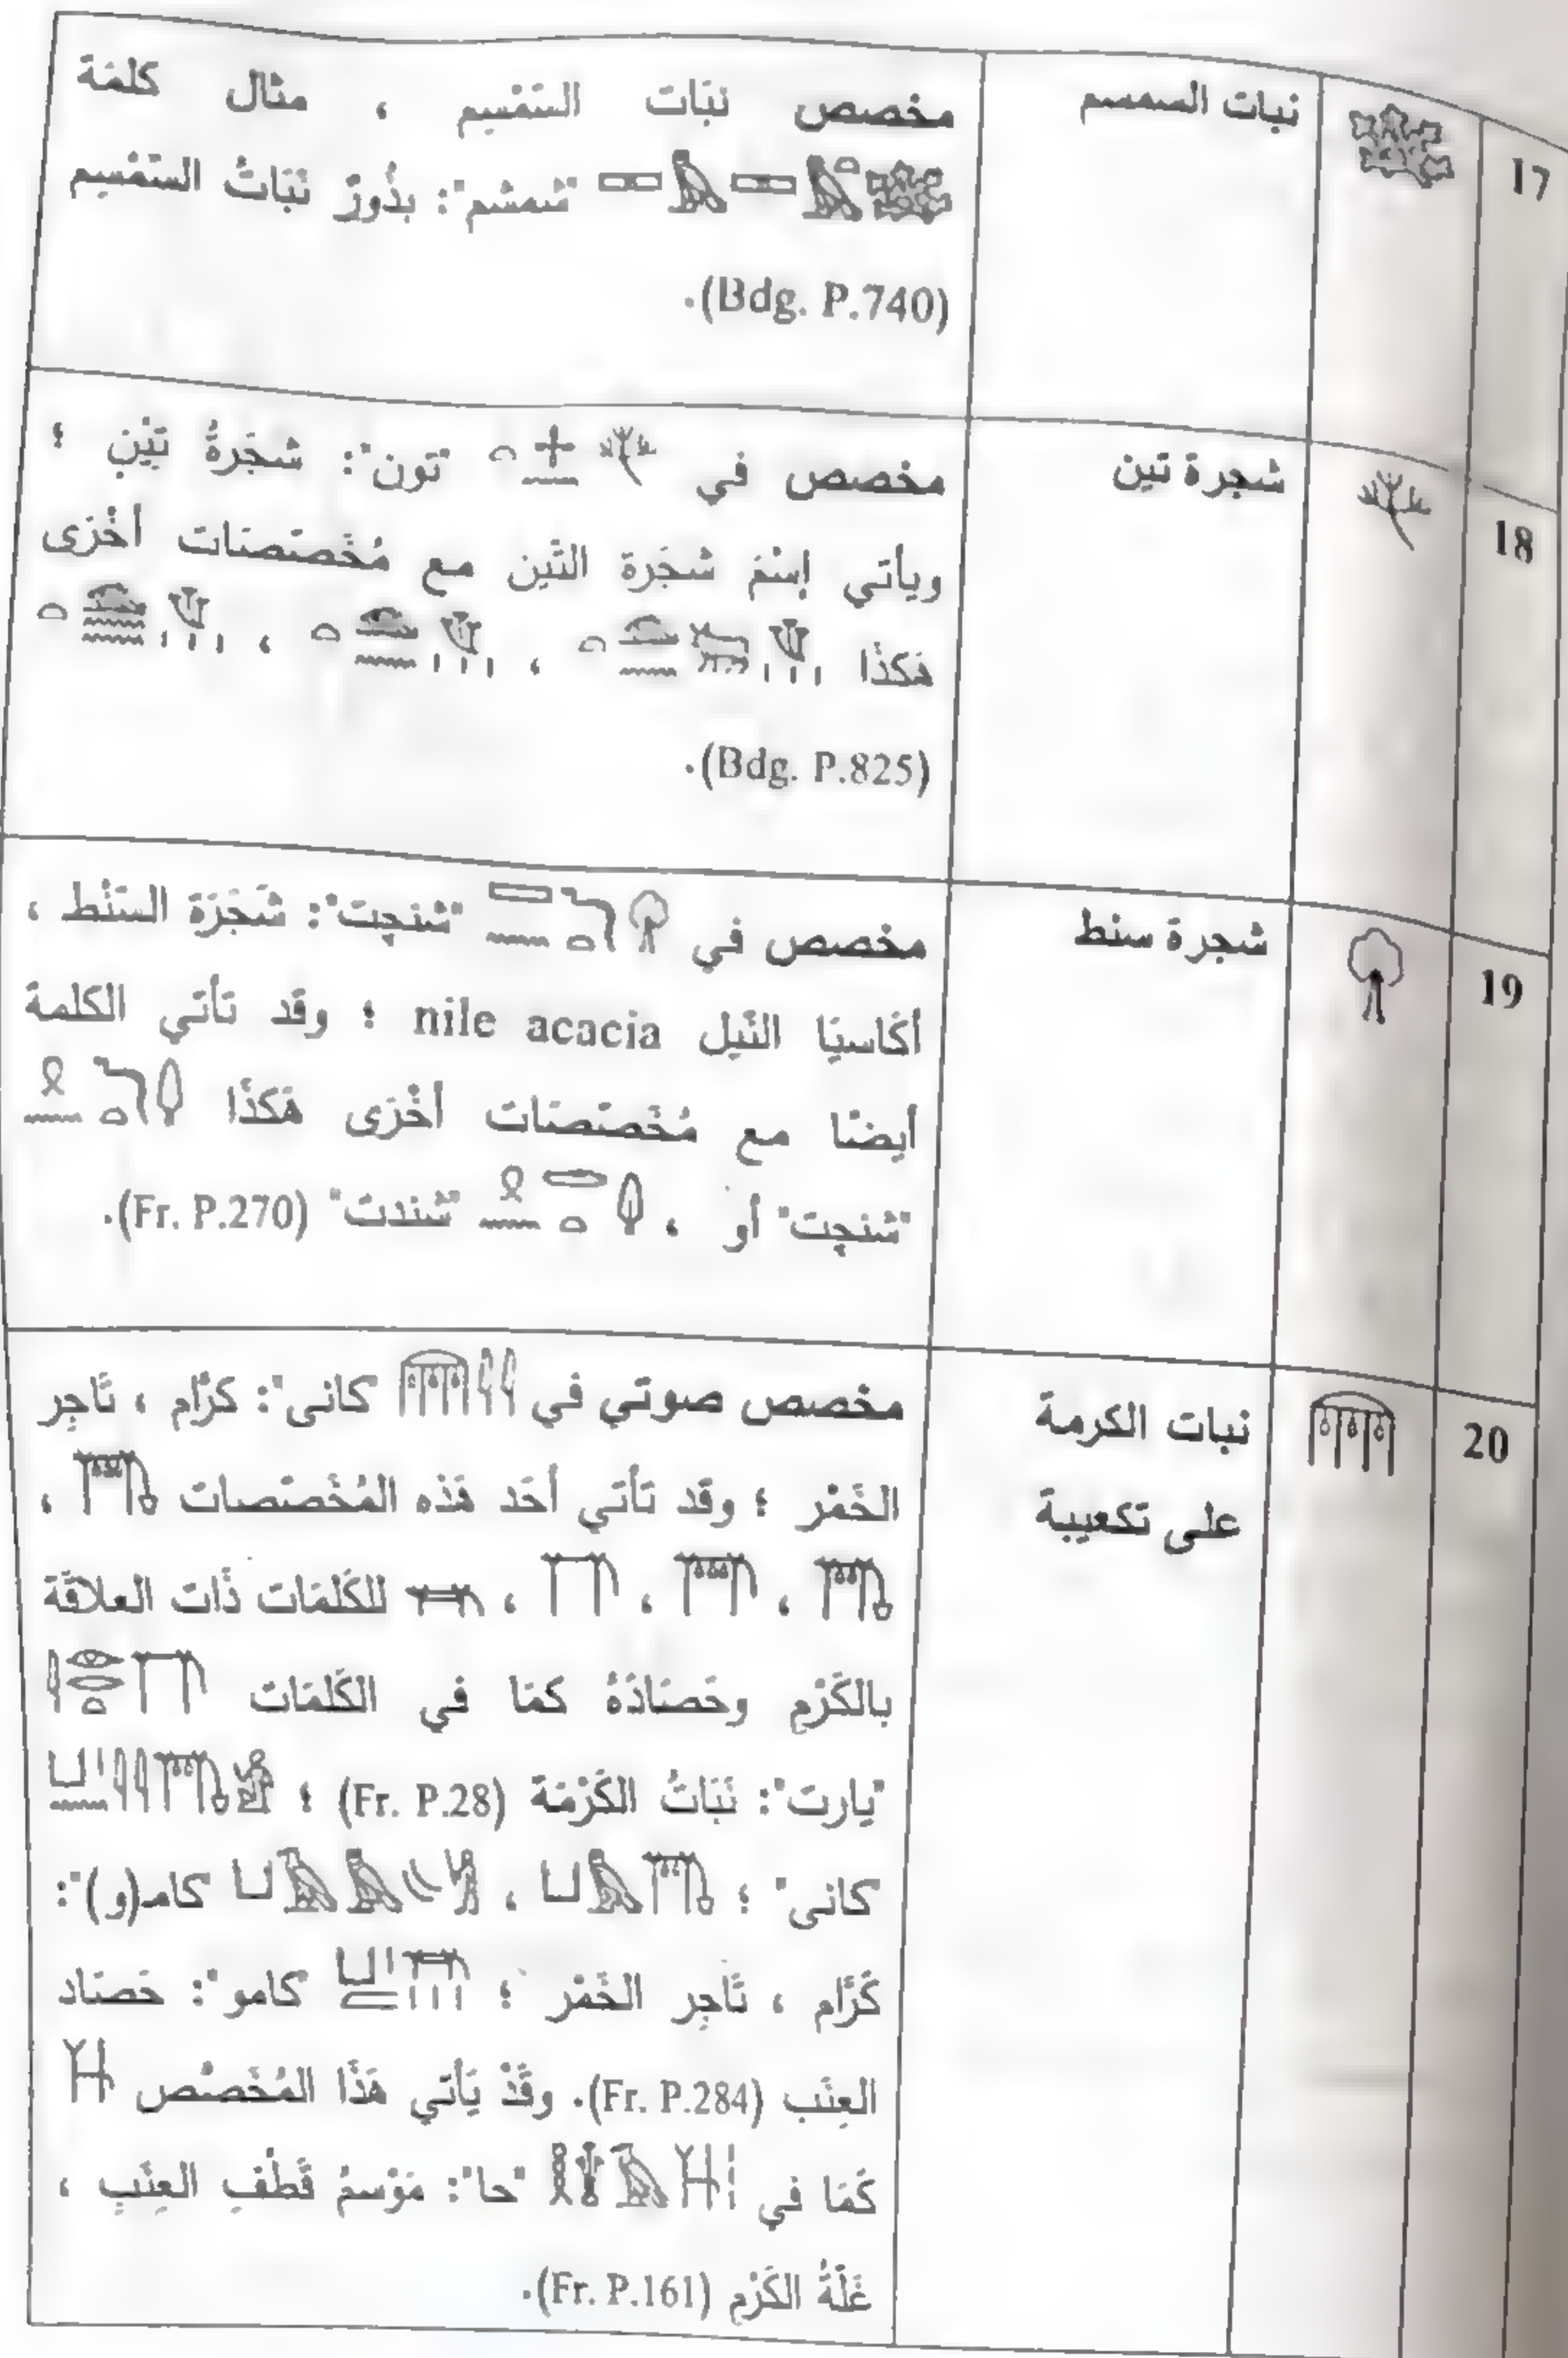 17 نبات السمسم مخصص نبَات السَمْسِم ، مثال كلمَة
"شمشم": بذُورُ نَبَاتُ السَمْسِم
(Bdg. P.740).
18 شجرة تين مخصص في "تون": شجَرةُ تِيْنِ ؛
ويأتي إسْمَ شجَرة التّين مع مُخَصَصَات أخْرَى
هَكذَا ، ،
(Bdg. P.825).
19 شجرة سنط مخصص في "شنچت": شَجَرَة السَنْط ،
أكَاسيَا النّيل nile acacia ؛ وقد تأتي الكلمة
أيضًا مع مُخَصَصَات أخْرَى هَكذَا
"شنچت" أو ، "شندت" (Fr. P.270).
20 نبات الكرمة مخصص صوتي في كانى": كرَّام ، تَاجِر
على تكعيبة الخَمْر ؛ وقد تأتي أحَد هَذه المُخَصَصات ،
، ، ، للكَلمَات ذَات العلاقَة
بالكَرْمِ وحَصَادَهُ كمَا في الكَلمَات
"يارت": نَبَاتُ الكَرْمَة (Fr. P.28) ؛
كانى" ؛ ، كامـ(و)":
كَرَّام ، تَاجِر الخَمْر ؛ "كامو": حَصَاد
العِنَب (Fr. P.284). وقَدْ يَأتي هَذَا المُخَصصْ
كَمَا في "حا": مَوْسمُ قَطْفِ العِنَبِ ،
غَلَةُ الكَرْم (Fr. P.161).